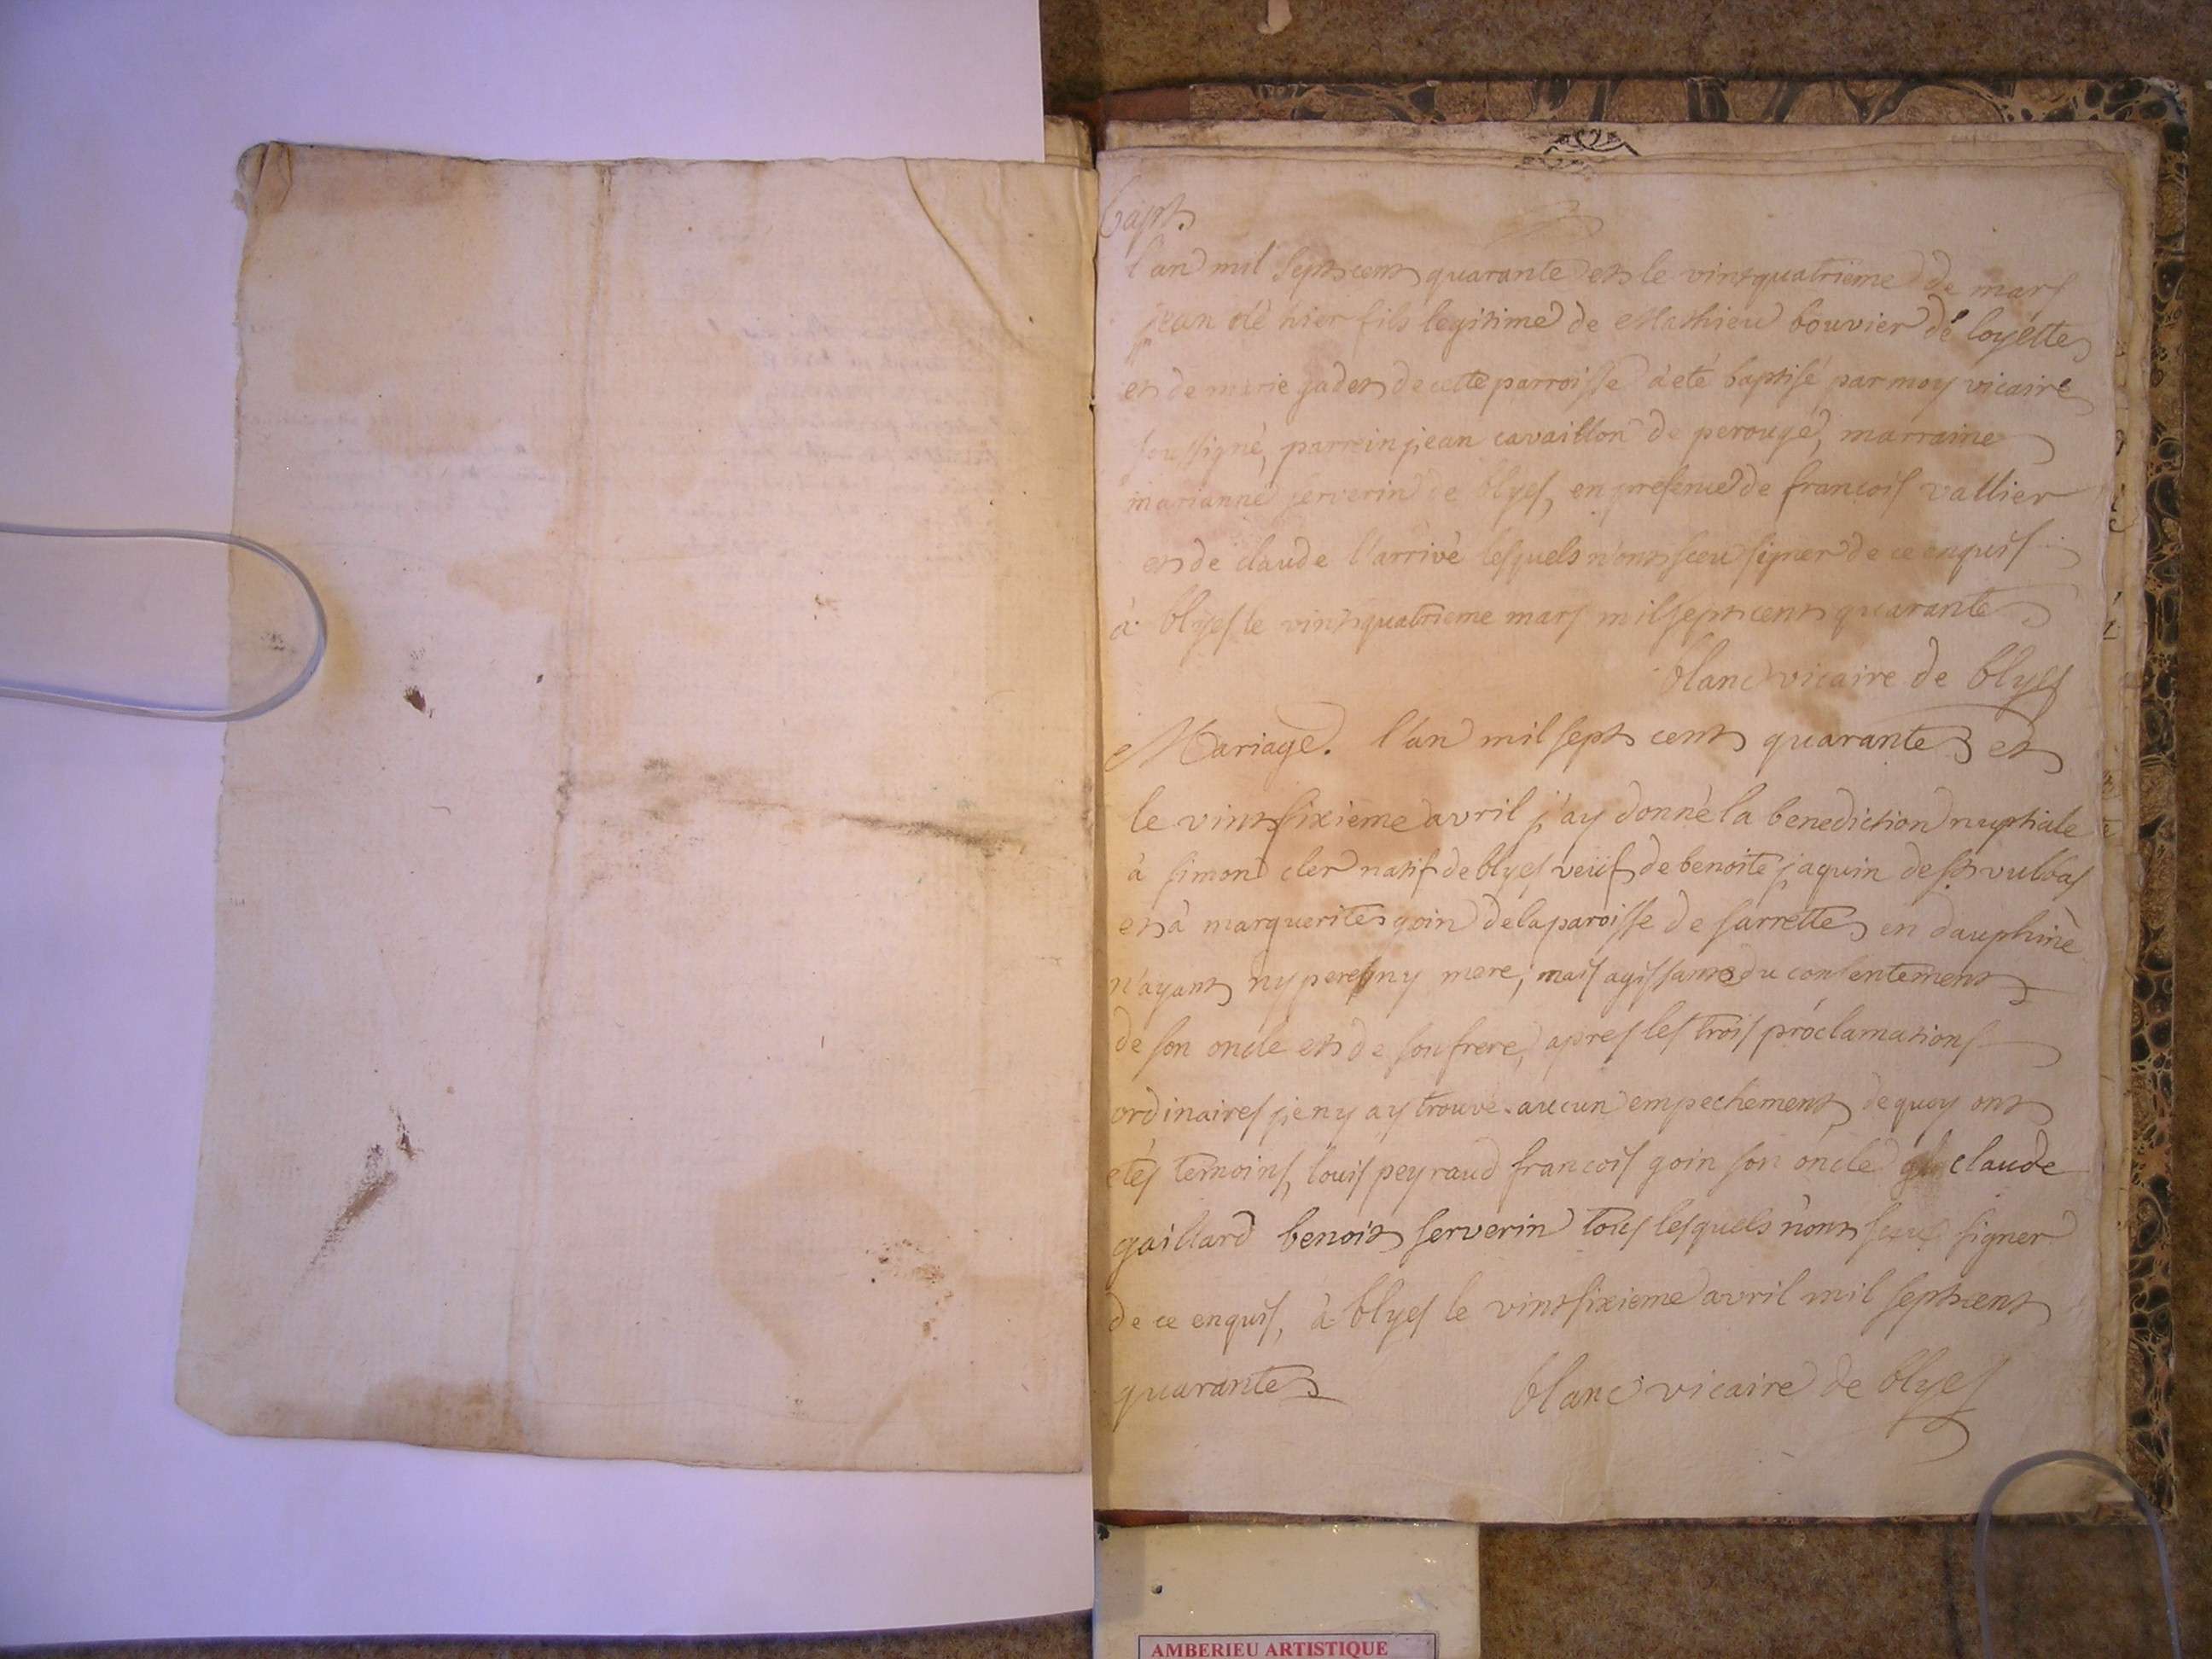 bapt.
l'an mil sept cent quarante et le vintquatriéme de mars
jean né hier fils legitime de Mathieu bouvier de loyette
et de marie gadet de cette parroisse à eté baptisé par moy vicaire
soussigné, parrein jean cavaillon de perouge, marraine
marianne serverin de blyes, en presence de francois vallier
et de claude l'arrivé lesquels n'ont sceu signer de ce enquis
à blyes le vint quatrieme mars mil sept cent quarante
blanc vicaire de blyes
Mariage. l'an mil sept cent quarante et
le vint sixieme avril j'ay donné la benediction nuptiale
à simon cler natif de blyes veüf de benoite jaquin de st vulbas
et à marguerite goin de la paroisse de sarrette en dauphinè
n'ayant ny pere ny mere; mais agissante du consentement
de son oncle et de son frere, apres les trois proclamations
ordinaires je n'y ay trouvé aucun empechement, de quoy ont
etés temoins, louis peyraud francois goin son oncle claude
gaillard benoit serverin tous lesquels n'ont sceu signer
de ce enquis, à blyes le vint sixieme avril mil sept cent
quarante blanc vicaire de blyes
AMBERIEU ARTISTIQUE